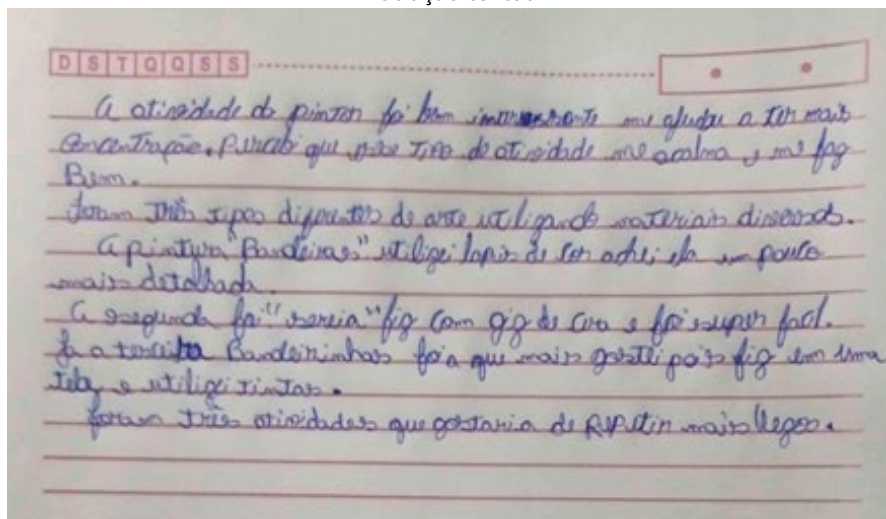 D S T Q Q S S
A atividade de pintar foi bem interessante me ajudar a ter mais
concentração. Percebi que esse tipo de atividade me acalma e me faz
Bem.
foram três tipos diferentes de arte utilizando materiais diversos.
A pintura "Bandeiras" utilizei lapis de cor achei ela um pouco
mais detalhada.
A segunda foi "sereia" fiz com giz de cera e foi super facil.
Ja a terceira Bandeirinhas foi a que mais gostei pois fiz em uma
tela e utilizei tintas.
foram três atividades que gostaria de repetir mais vezes.